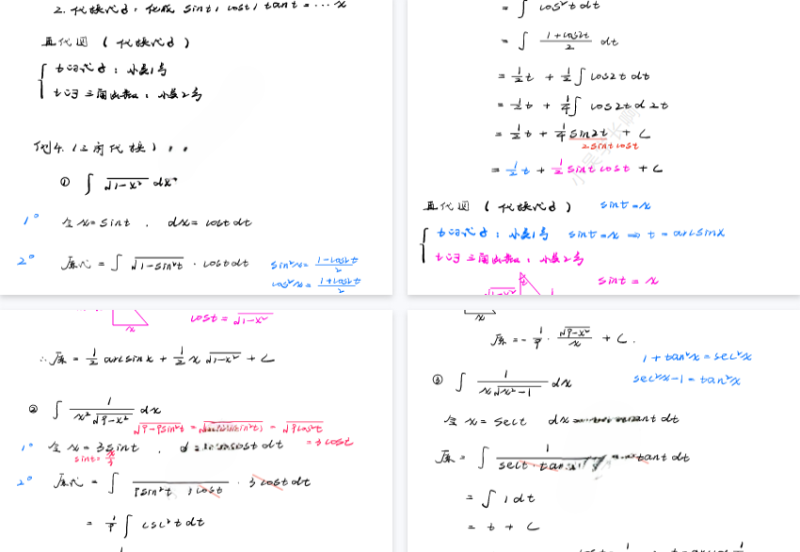 2. 代换代t：化成 sint, cost, tant = ... x
再代回（代换代t）
t的代t：小菜1号
t的三角函数：小菜2号
例4.（三角代换）
① ∫ √(1-x²) dx
1° 令x=sint , dx=costdt
2° 原代=∫ √(1-sin²t) · costdt
sin²x=(1-cos2t)/2
cos²x=(1+cos2t)/2
= ∫ cos²tdt
= ∫ (1+cos2t)/2 dt
= 1/2 t + 1/2 ∫ cos2tdt
= 1/2 t + 1/4 ∫ cos2td2t
= 1/2 t + 1/4 sin2t + C
2sintcost
= 1/2 t + 1/2 sintcost + C
再代回（代换代t） sint=x
t的代t：小菜1号 sint=x ⇒ t=arcsinx
t的三角函数：小菜2号
√(1-x²)
sint = x
x
cost = √(1-x²)
∴原=1/2 arcsinx + 1/2 x √(1-x²) + C
② ∫ 1/(x²√(9-x²)) dx
√(9-9sin²t) = = √(9cos²t)
1° 令x=3sint , dt =3cost
sint=x/3
2° 原代=∫ 1/(9sin²t 3cost) · 3costdt
= 1/9 ∫ csc²tdt
x
原=-1/9 · √(9-x²)/x + C.
1+tan²x=sec²x
sec²x-1=tan²x
③ ∫ 1/(x√(x²-1)) dx
令x=sect dx= tantdt
原=∫ 1/(sect tant) tantdt
= ∫ 1dt
= t + C